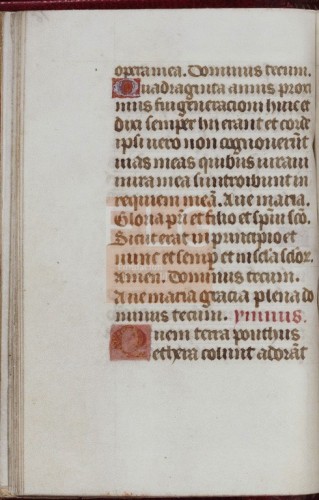 opera mea. Dominus tecum.
Quadraginta annis proxi
mus fui generacioni huic et
dixi semper hii errant et corde
ipsi vero non cognoverūt
vias meas quibus iuravi
in ira mea si introibunt in
requiem meā. Ave maria.
Gloria pr̄i et filio et sp̄ui sc̄o.
Sicut erat in principio et
nunc et semp̄ et in sc̄la sc̄lor̄.
Amen. Dominus tecum.
Ave maria gracia plena do
minus tecum. ymnus.
Quem terra ponthus
ethera colunt adorāt